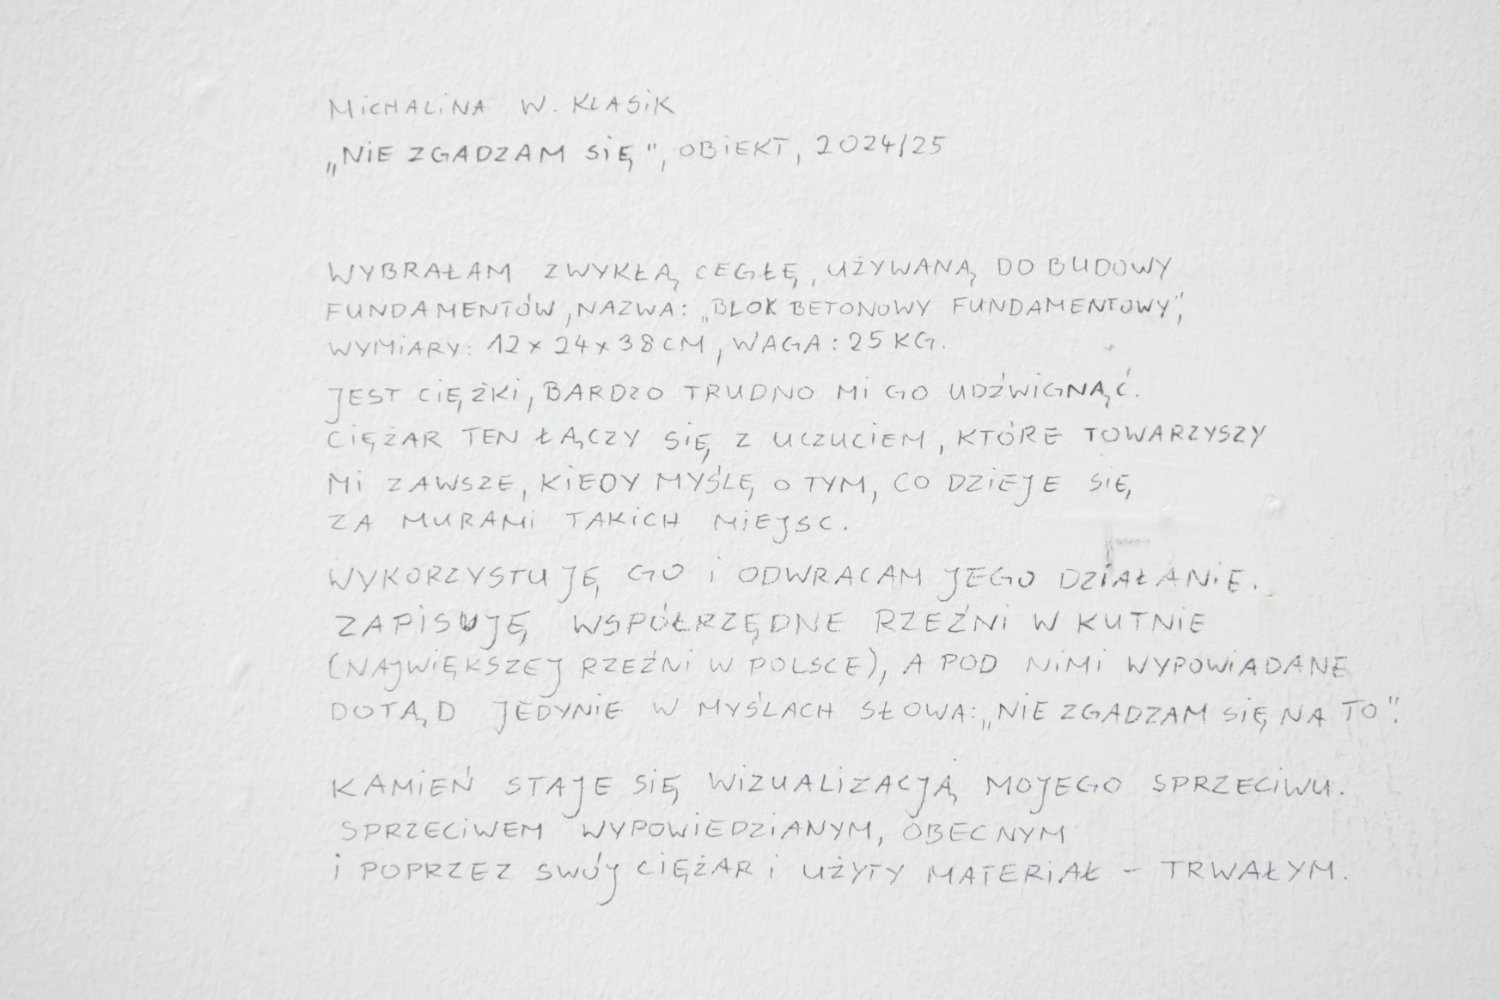 MICHALINA W. KLASIK
„NIE ZGADZAM SIĘ", OBIEKT, 2024/25
WYBRAŁAM ZWYKŁĄ CEGŁĘ, UŻYWANĄ DO BUDOWY
FUNDAMENTÓW, NAZWA: „BLOK BETONOWY FUNDAMENTOWY",
WYMIARY: 12 x 24 x 38 CM, WAGA: 25 KG.
JEST CIĘŻKI, BARDZO TRUDNO MI GO UDŹWIGNĄĆ.
CIĘŻAR TEN ŁĄCZY SIĘ Z UCZUCIEM, KTÓRE TOWARZYSZY
MI ZAWSZE, KIEDY MYŚLĘ O TYM, CO DZIEJE SIĘ
ZA MURAMI TAKICH MIEJSC.
WYKORZYSTUJĘ GO I ODWRACAM JEGO DZIAŁANIE.
ZAPISUJĘ WSPÓŁRZĘDNE RZEŹNI W KUTNIE
(NAJWIĘKSZEJ RZEŹNI W POLSCE), A POD NIMI WYPOWIADANE
DOTĄD JEDYNIE W MYŚLACH SŁOWA: „NIE ZGADZAM SIĘ NA TO".
KAMIEŃ STAJE SIĘ WIZUALIZACJĄ MOJEGO SPRZECIWU.
SPRZECIWEM WYPOWIEDZIANYM, OBECNYM
I POPRZEZ SWÓJ CIĘŻAR I UŻYTY MATERIAŁ – TRWAŁYM.